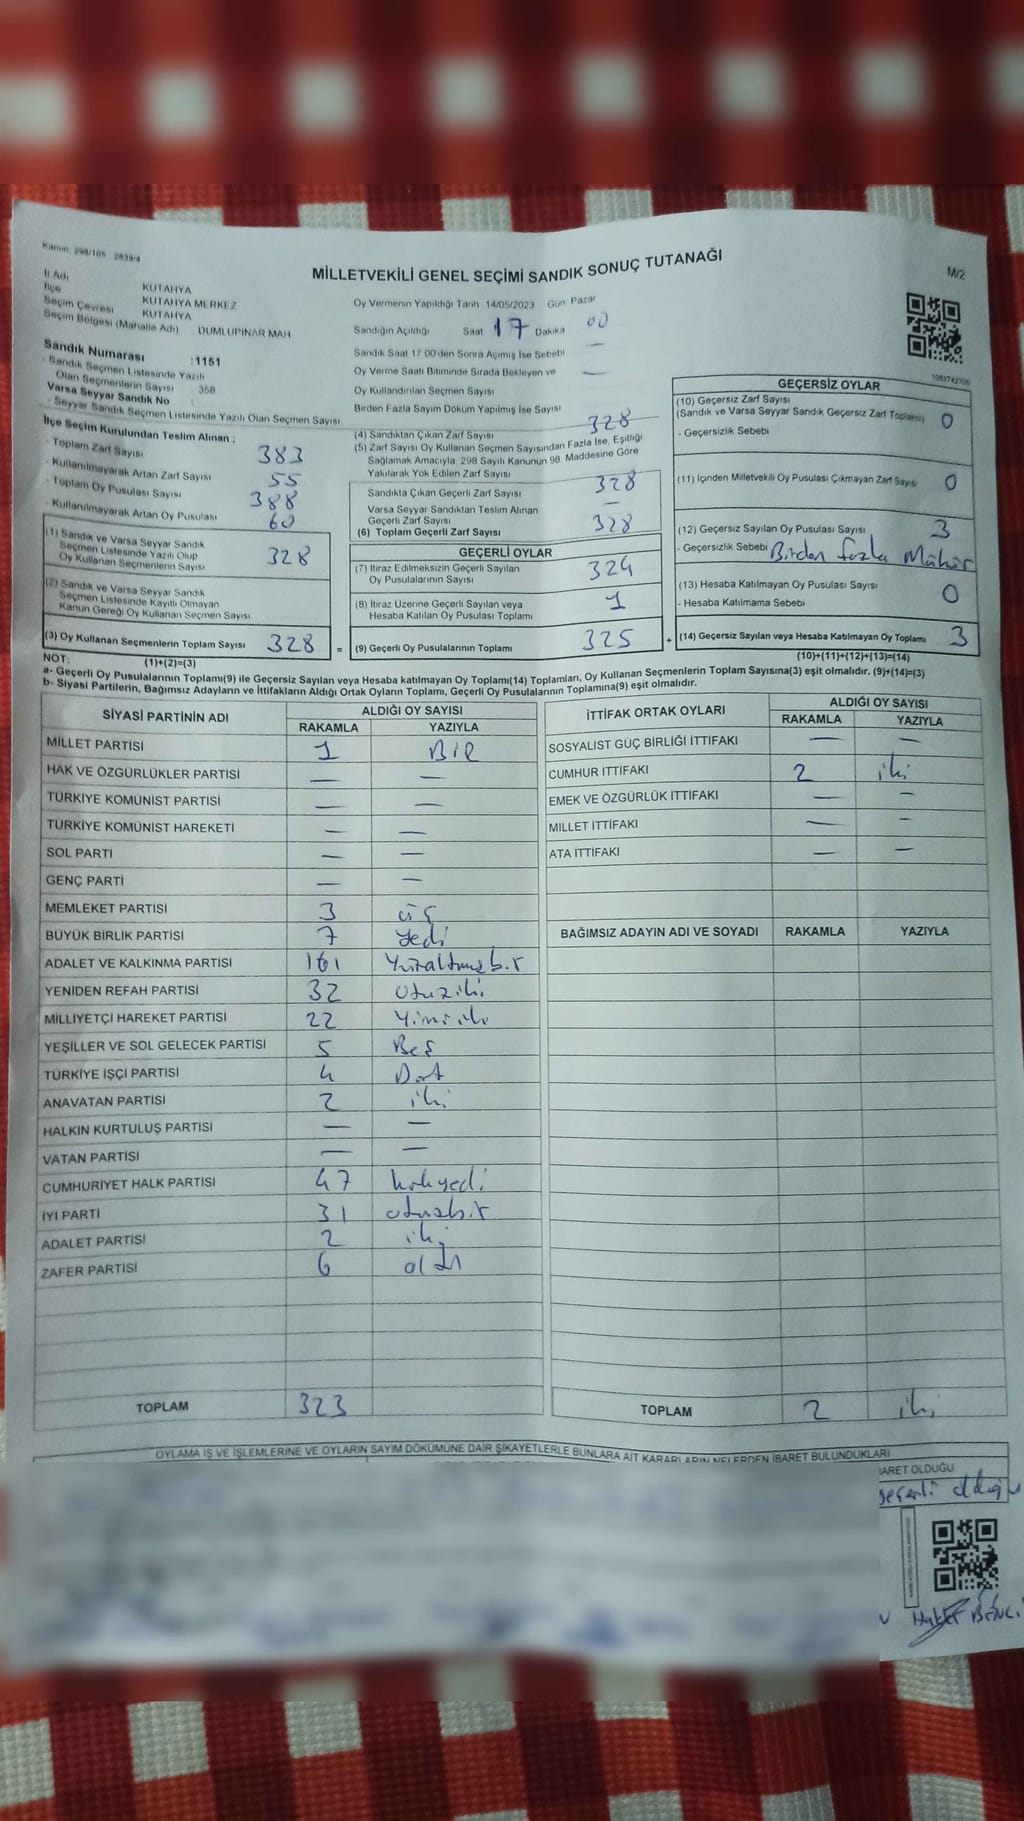 Kanun: 298/105 2839/4
MİLLETVEKİLİ GENEL SEÇİMİ SANDIK SONUÇ TUTANAĞI
M/2
İl Adı KÜTAHYA
İlçe KÜTAHYA MERKEZ
Seçim Çevresi KÜTAHYA
Seçim Bölgesi (Mahalle Adı) DUMLUPINAR MAH
Oy Vermenin Yapıldığı Tarih 14/05/2023 Gün Pazar
Sandığın Açıldığı Saat 17 Dakika 00
Sandık Saat 17 00'den Sonra Açılmış İse Sebebi —
Oy Verme Saati Bitiminde Sırada Bekleyen ve —
Oy Kullandırılan Seçmen Sayısı
Birden Fazla Sayım Döküm Yapılmış İse Sayısı
Sandık Numarası :1151
- Sandık Seçmen Listesinde Yazılı
Olan Seçmenlerin Sayısı 358
Varsa Seyyar Sandık No
- Seyyar Sandık Seçmen Listesinde Yazılı Olan Seçmen Sayısı
İlçe Seçim Kurulundan Teslim Alınan ;
- Toplam Zarf Sayısı 383
- Kullanılmayarak Artan Zarf Sayısı 55
- Toplam Oy Pusulası Sayısı 388
- Kullanılmayarak Artan Oy Pusulası 60
(1) Sandık ve Varsa Seyyar Sandık
Seçmen Listesinde Yazılı Olup
Oy Kullanan Seçmenlerin Sayısı 328
(2) Sandık ve Varsa Seyyar Sandık
Seçmen Listesinde Kayıtlı Olmayan
Kanun Gereği Oy Kullanan Seçmen Sayısı
(3) Oy Kullanan Seçmenlerin Toplam Sayısı 328 =
(1)+(2)=(3)
(4) Sandıktan Çıkan Zarf Sayısı 328
(5) Zarf Sayısı Oy Kullanan Seçmen Sayısından Fazla İse, Eşitliği
Sağlamak Amacıyla, 298 Sayılı Kanunun 98. Maddesine Göre
Yakılarak Yok Edilen Zarf Sayısı
Sandıkta Çıkan Geçerli Zarf Sayısı 328
Varsa Seyyar Sandıktan Teslim Alınan
Geçerli Zarf Sayısı —
(6) Toplam Geçerli Zarf Sayısı 328
GEÇERLİ OYLAR
(7) İtiraz Edilmeksizin Geçerli Sayılan
Oy Pusulalarının Sayısı 324
(8) İtiraz Üzerine Geçerli Sayılan veya
Hesaba Katılan Oy Pusulası Toplamı 1
(9) Geçerli Oy Pusulalarının Toplamı 325 +
1083742705
GEÇERSİZ OYLAR
(10) Geçersiz Zarf Sayısı
(Sandık ve Varsa Seyyar Sandık Geçersiz Zarf Toplamı) 0
- Geçersizlik Sebebi
(11) İçinden Milletvekili Oy Pusulası Çıkmayan Zarf Sayısı 0
(12) Geçersiz Sayılan Oy Pusulası Sayısı 3
- Geçersizlik Sebebi Birden fazla Mühür
(13) Hesaba Katılmayan Oy Pusulası Sayısı 0
- Hesaba Katılmama Sebebi
(14) Geçersiz Sayılan veya Hesaba Katılmayan Oy Toplamı 3
(10)+(11)+(12)+(13)=(14)
NOT:
a- Geçerli Oy Pusulalarının Toplamı(9) ile Geçersiz Sayılan veya Hesaba katılmayan Oy Toplamı(14) Toplamları, Oy Kullanan Seçmenlerin Toplam Sayısına(3) eşit olmalıdır. (9)+(14)=(3)
b- Siyasi Partilerin, Bağımsız Adayların ve İttifakların Aldığı Ortak Oyların Toplamı, Geçerli Oy Pusulalarının Toplamına(9) eşit olmalıdır.
SİYASİ PARTİNİN ADI ALDIĞI OY SAYISI
RAKAMLA YAZIYLA
MİLLET PARTİSİ 1 Bir
HAK VE ÖZGÜRLÜKLER PARTİSİ — —
TÜRKİYE KOMÜNİST PARTİSİ — —
TÜRKİYE KOMÜNİST HAREKETİ — —
SOL PARTİ — —
GENÇ PARTİ — —
MEMLEKET PARTİSİ 3 üç
BÜYÜK BİRLİK PARTİSİ 7 yedi
ADALET VE KALKINMA PARTİSİ 161 Yüzaltmışbir
YENİDEN REFAH PARTİSİ 32 otuziki
MİLLİYETÇİ HAREKET PARTİSİ 22 Yirmiiki
YEŞİLLER VE SOL GELECEK PARTİSİ 5 Beş
TÜRKİYE İŞÇİ PARTİSİ 4 Dört
ANAVATAN PARTİSİ 2 iki
HALKIN KURTULUŞ PARTİSİ — —
VATAN PARTİSİ — —
CUMHURİYET HALK PARTİSİ 47 kırkyedi
İYİ PARTİ 31 otuzbir
ADALET PARTİSİ 2 iki
ZAFER PARTİSİ 6 altı
TOPLAM 323
İTTİFAK ORTAK OYLARI ALDIĞI OY SAYISI
RAKAMLA YAZIYLA
SOSYALİST GÜÇ BİRLİĞİ İTTİFAKI — —
CUMHUR İTTİFAKI 2 iki
EMEK VE ÖZGÜRLÜK İTTİFAKI — —
MİLLET İTTİFAKI — —
ATA İTTİFAKI — —
BAĞIMSIZ ADAYIN ADI VE SOYADI RAKAMLA YAZIYLA
TOPLAM 2 iki
OYLAMA İŞ VE İŞLEMLERİNE VE OYLARIN SAYIM DÖKÜMÜNE DAİR ŞİKAYETLERLE BUNLARA AİT KARARLARIN NELERDEN İBARET BULUNDUKLARI
İBARET OLDUĞU
geçerli olduğu